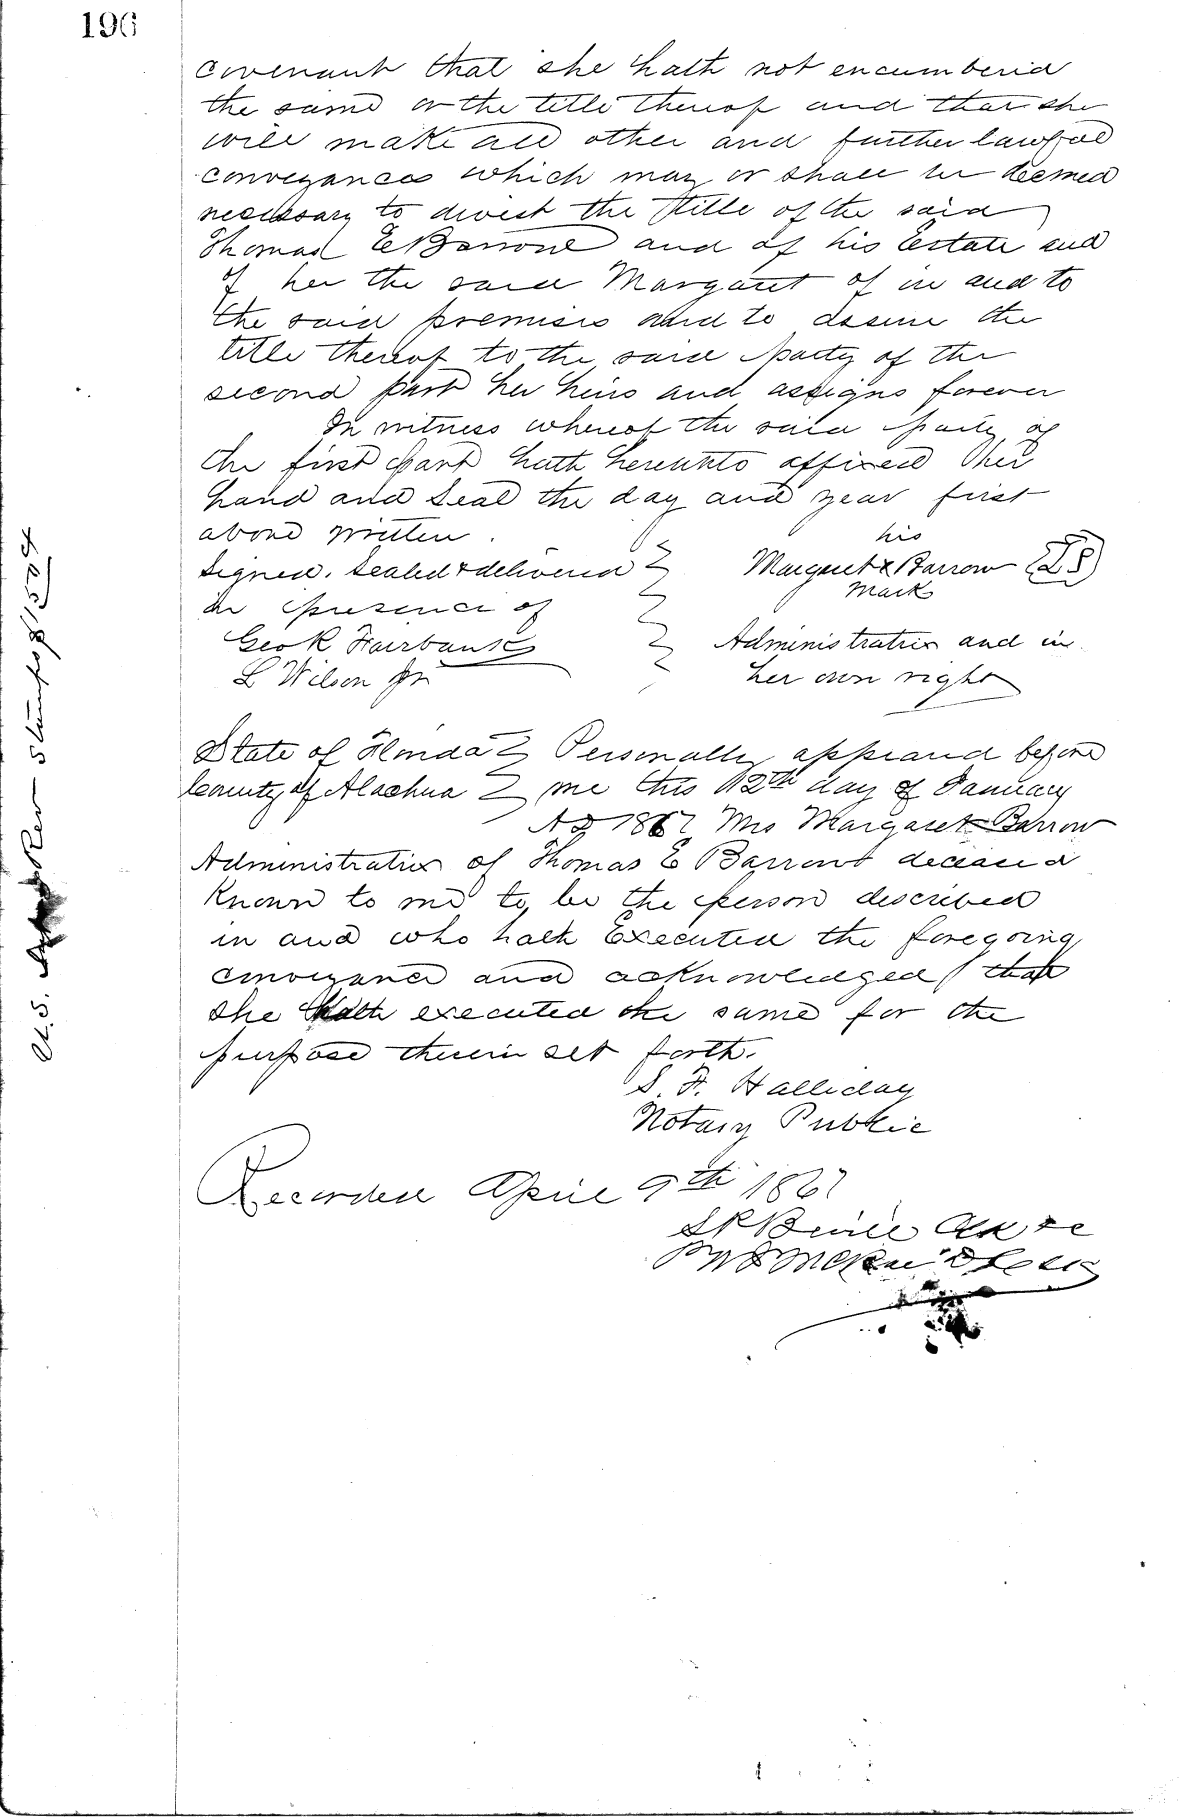 196
covenant that she hath not encumbered
the same or the title thereof and that she
will make all other and further lawful
conveyances which may or shall be deemed
necessary to divest the title of the said
Thomas E Barrow and of his Estate and
of her the said Margaret of in and to
the said premises and to assure the
title thereof to the said party of the
second part her heirs and assigns forever
In witness whereof the said party of
the first part hath hereunto affixed her
hand and seal the day and year first
above written.
his
Signed, Sealed & delivered Margaret X Barrow LS
mark
in presence of
Geo R Fairbanks Administratrix and in
L Wilson Jr her own right
State of Florida Personally appeared before
County of Alachua me this 12th day of January
AD 1867 Mrs Margaret Barrow
Administratrix of Thomas E Barrow deceased
Known to me to be the person described
in and who hath Executed the foregoing
conveyance and acknowledged that
she hath executed the same for the
purpose therein set forth.
S. F. Halliday
Notary Public
Recorded April 9th 1867
Clk
U.S. Rev Stamps $1 50